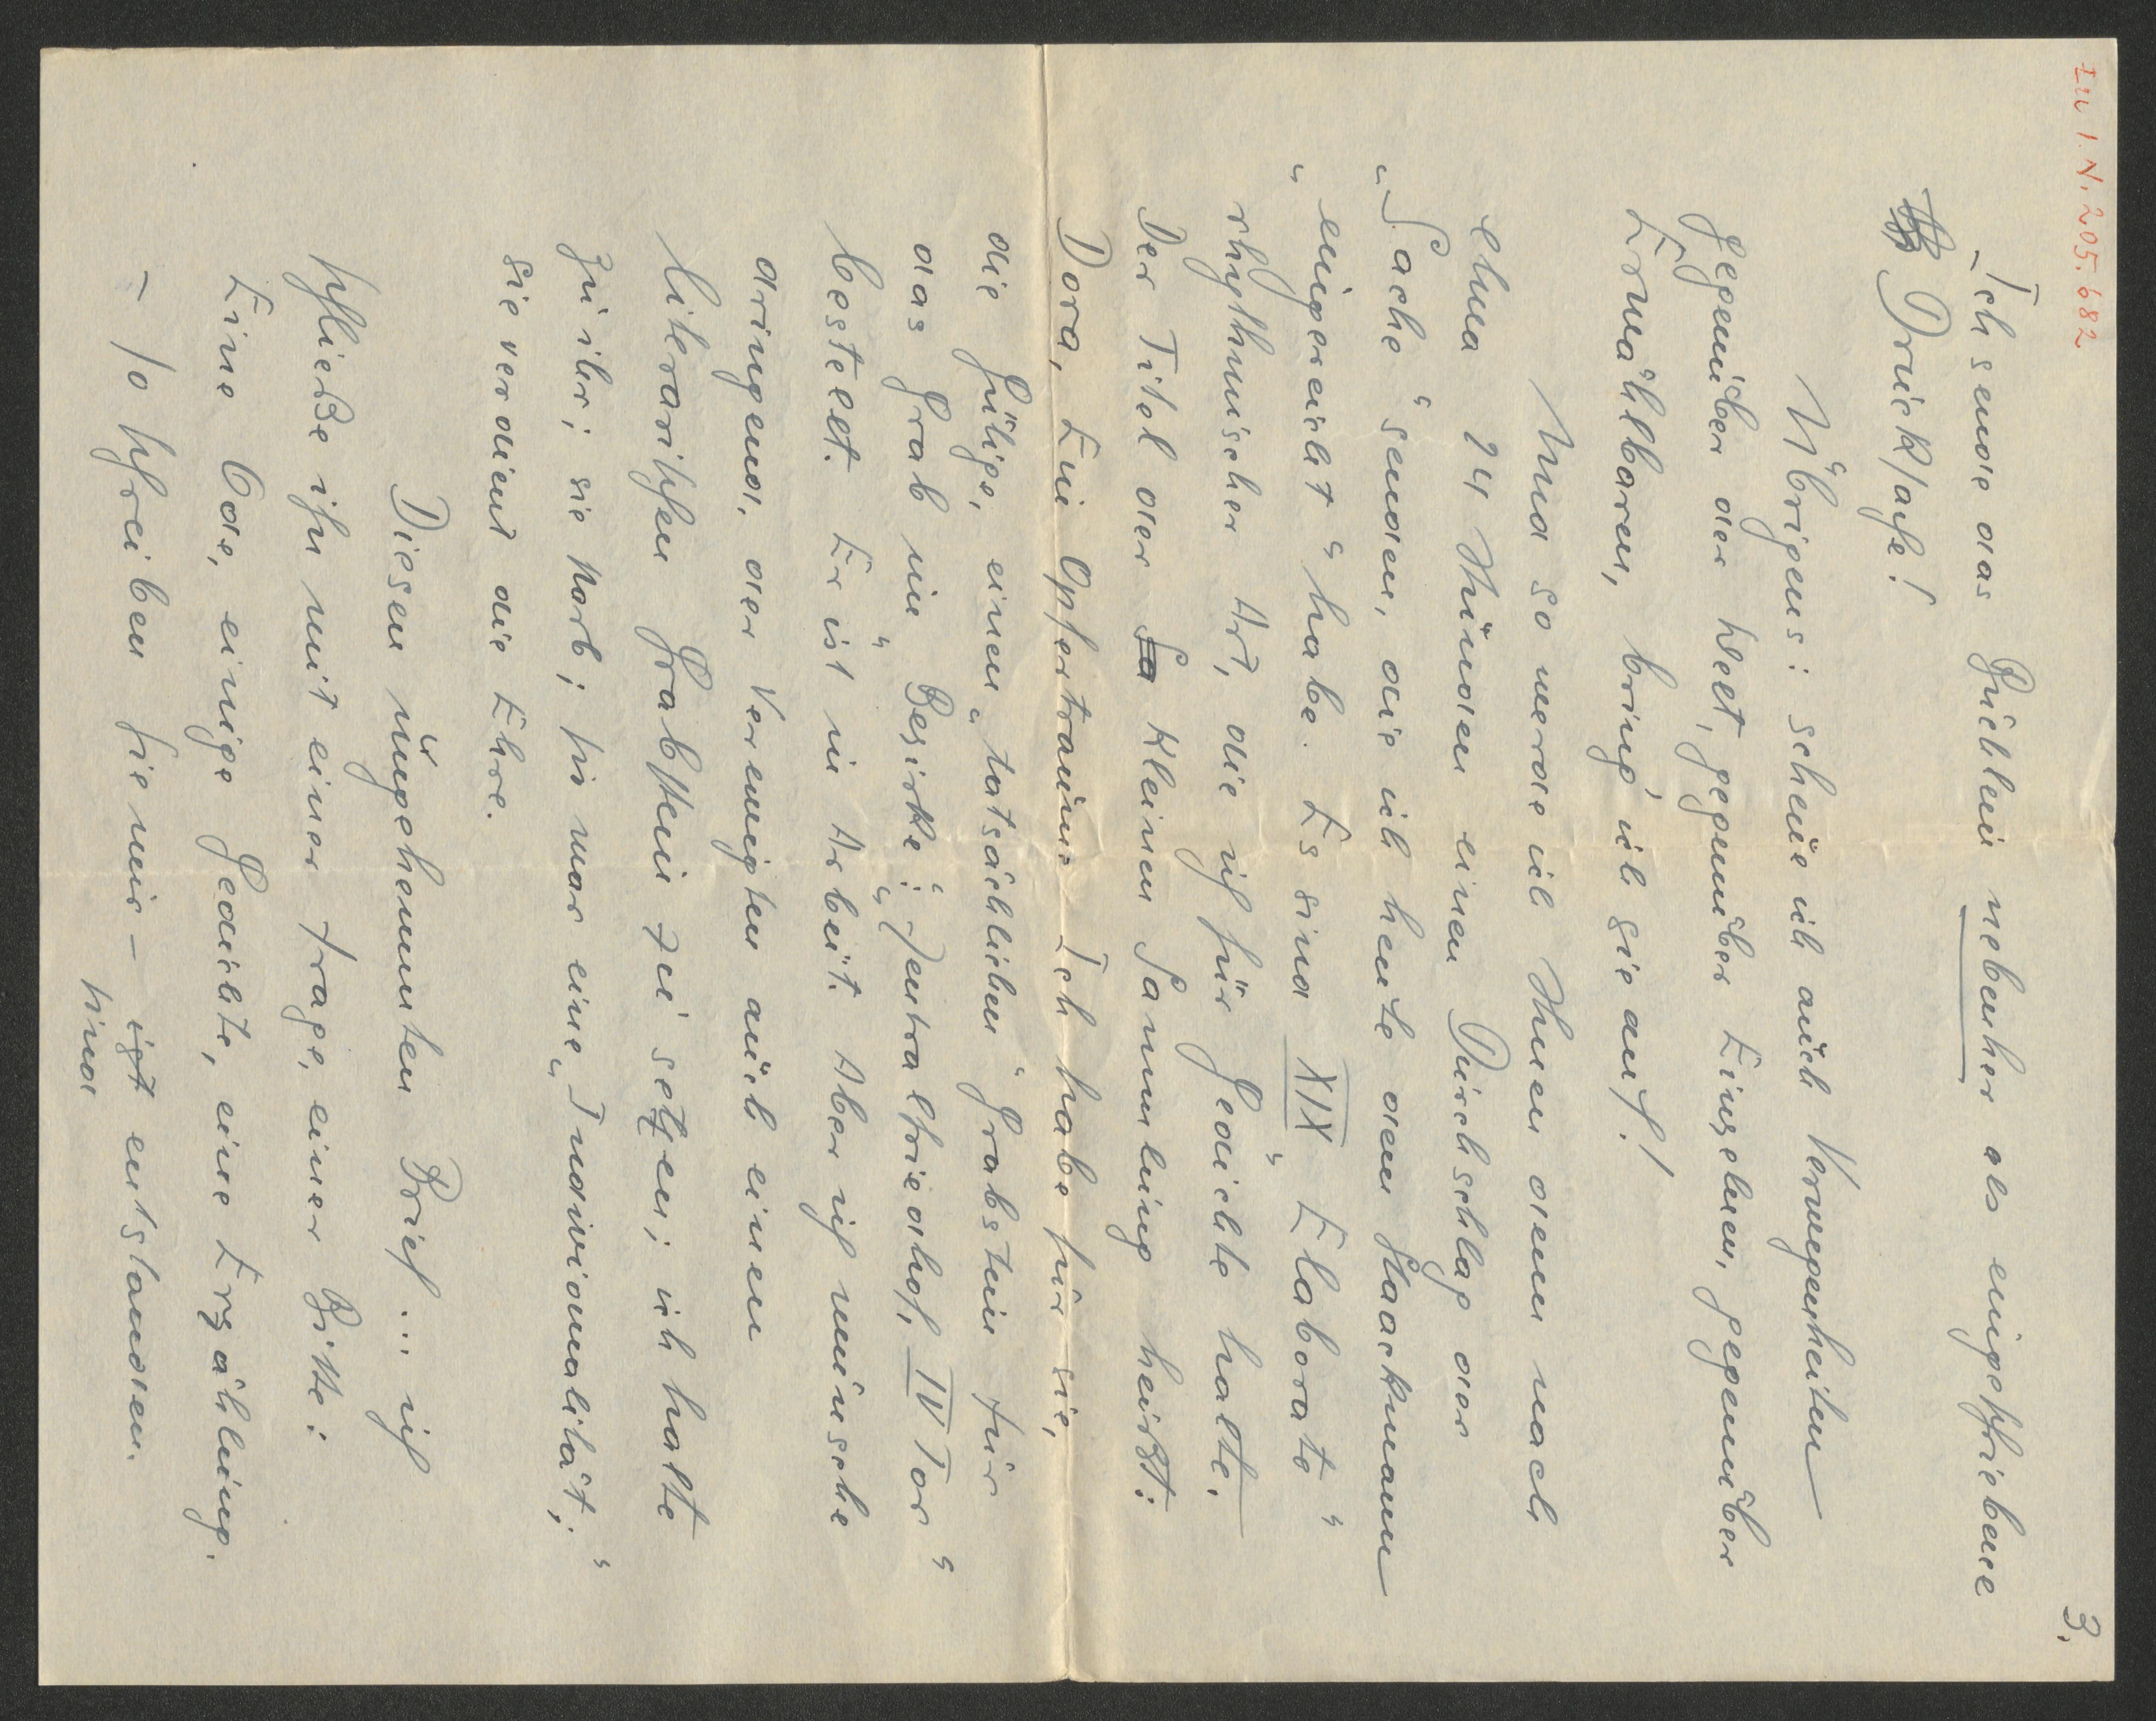 zu I. N. 205.682
3.
Ich sende das Büchlein nebenher als eingeschriebene
Drucksache!
Übrigens: scheue ich auch Verwegenheiten
gegenüber der Welt, gegenüber Einzelnen, gegenüber
Ermählbaren, bring' ich sie auf!
Und so werde ich Ihnen denn nach
etwa 24 Stunden einen Durchschlag der
„Sache“ senden, die ich heute dem Staackmann
„eingereicht“ habe. Es sind XIX „Elaborate“
rhythmischer Art, die ich für Gedichte halte.
Der Titel der Sa kleinen Sammlung heißt:
Dora, Ein Opfertraum. Ich habe für sie,
die Gütige, einen „tatsächlichen“ Grabstein für
das Grab im „Bezirke“: „Zentralfriedhof, IV Tor“
bestellt. Er ist in Arbeit. Aber ich wünsche
dringend, der Verewigten auch einen
literarischen Grabstein zu setzen; ich halte
zu ihr; sie starb; sie war eine „Individualität“;
sie verdient die Ehre.
Diesen ungehemmten Brief ... ich
schließe ihn mit einer Frage, einer Bitte:
Eine Ode, einige Gedichte, eine Erzählung.
– so schreiben Sie mir – ist entstanden.
sind